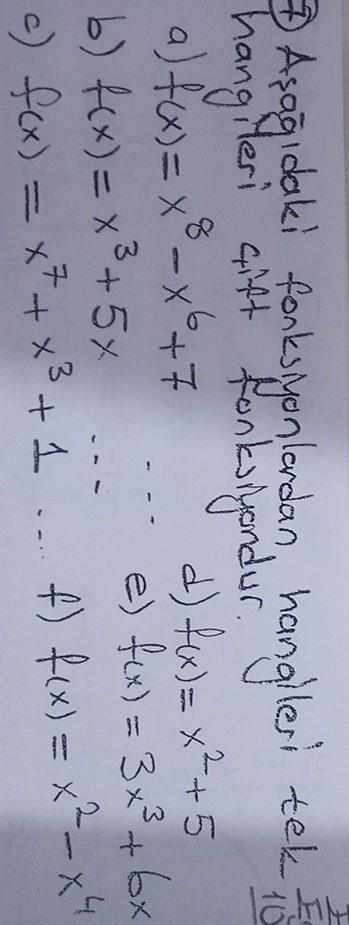 7) Aşağıdaki fonksiyonlardan hangileri tek
hangileri çift fonksiyondur.
a) f(x) = x⁸ - x⁶ + 7 ...
b) f(x) = x³ + 5x ...
c) f(x) = x⁷ + x³ + 1 ...
d) f(x) = x² + 5
e) f(x) = 3x³ + 6x
f) f(x) = x² - x⁴